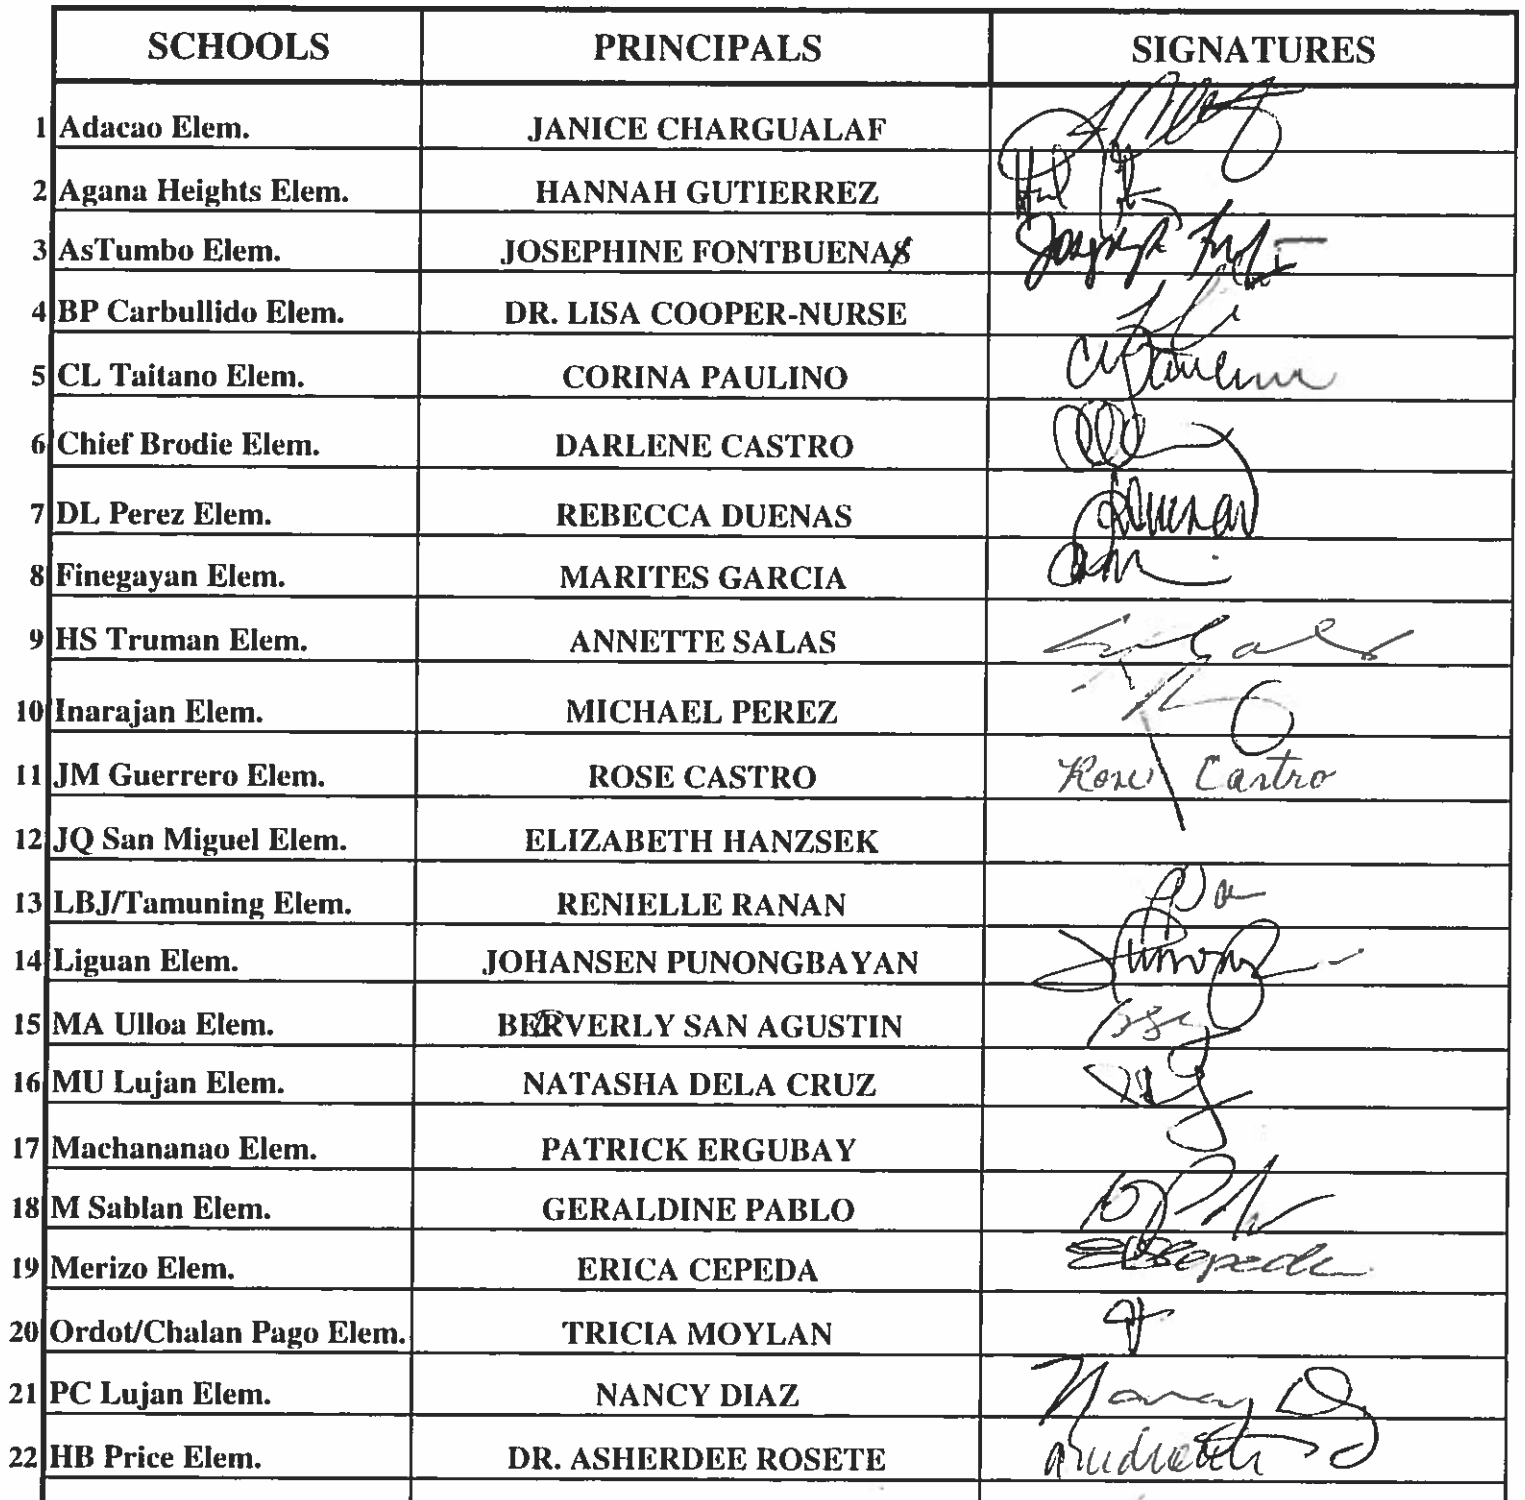 SCHOOLS PRINCIPALS SIGNATURES
1 Adacao Elem. JANICE CHARGUALAF
2 Agana Heights Elem. HANNAH GUTIERREZ
3 AsTumbo Elem. JOSEPHINE FONTBUENAS
4 BP Carbullido Elem. DR. LISA COOPER-NURSE
5 CL Taitano Elem. CORINA PAULINO
6 Chief Brodie Elem. DARLENE CASTRO
7 DL Perez Elem. REBECCA DUENAS
8 Finegayan Elem. MARITES GARCIA
9 HS Truman Elem. ANNETTE SALAS
10 Inarajan Elem. MICHAEL PEREZ
11 JM Guerrero Elem. ROSE CASTRO Rose Castro
12 JQ San Miguel Elem. ELIZABETH HANZSEK
13 LBJ/Tamuning Elem. RENIELLE RANAN
14 Liguan Elem. JOHANSEN PUNONGBAYAN
15 MA Ulloa Elem. BERVERLY SAN AGUSTIN
16 MU Lujan Elem. NATASHA DELA CRUZ
17 Machananao Elem. PATRICK ERGUBAY
18 M Sablan Elem. GERALDINE PABLO
19 Merizo Elem. ERICA CEPEDA
20 Ordot/Chalan Pago Elem. TRICIA MOYLAN
21 PC Lujan Elem. NANCY DIAZ Nancy D
22 HB Price Elem. DR. ASHERDEE ROSETE